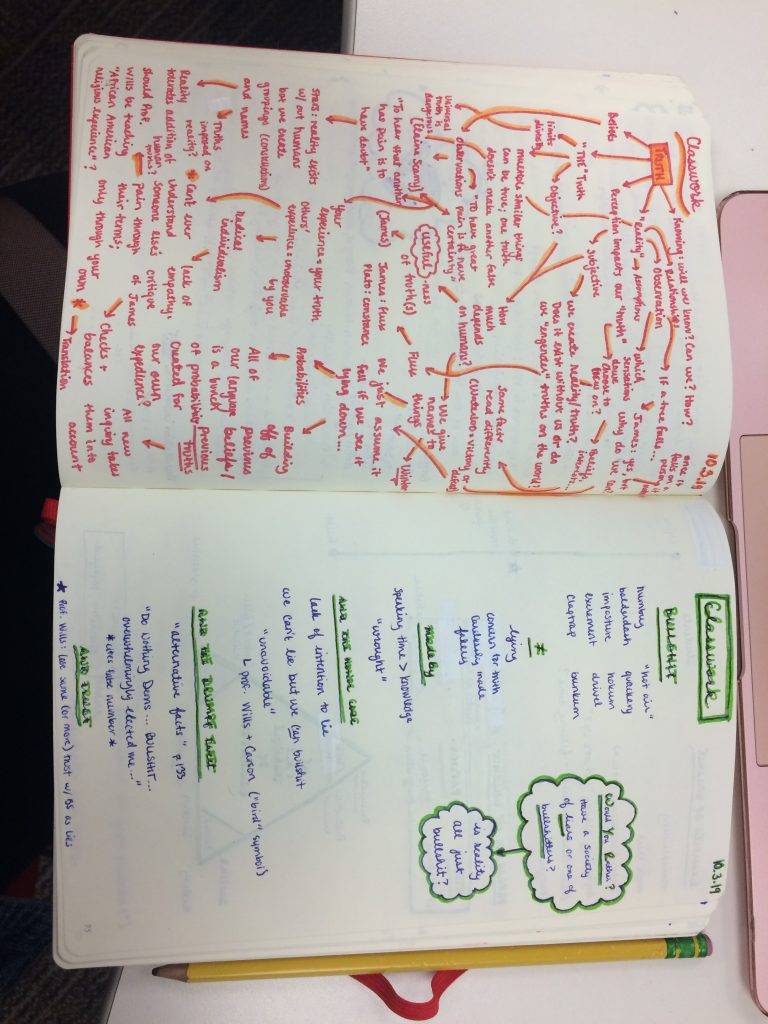 Classwork
10.3.19
TRUTH
Knowing: will we know? Can we? How?
relationships
Observation
If a tree falls...
once is
falls on a
person, it
"reality" → assumptions
which
James: yes, but
Perception impacts our "truth"
sensations why do we
dawe
choose to
focus on?
Beliefs
"THE" Truth
limits
directly
Objective?
Subjective
Beliefs,
interests...
we create reality/truth?
Does it exist without us or do
we "engender" truths on the world?
multiple similar things
can be true; one truth
doesn't make another false
Universal
truth is
dangerous
observations
To have great
pain is to have
certainty"
(Elaine Scarry)
"To hear that another
has pain is to
have doubt"
How
much
depends
on humans?
same facts
read differently
(Waterloo = victory or
defeat)
useful-ness
of truth(s)
(James)
Flux
We give
names to
things
Winter
James: Flux
Plato: constance
we just assume it
fell if we see it
lying down...
your
experience = your truth
others'
experience = unobservable
by you
Stars: reality exists
w/out humans
but we create
groupings (constellation)
and names
Probabilities
Building
off of
previous
beliefs/
previous
truths
All of
our language
is a bunch
of probability
created for
our own
expedience?
Radical
individualism
Truths
imposed on
reality?
Reality
tolerates addition of
human
truths?
Can't ever
understand
someone else's
pain through
their terms;
only through your
own *
lack of
empathy:
critique
of James
Should Prof.
Wills be teaching
"African American
religious experience"?
Checks +
balances
All new
inquiry takes
them into
account
* → Translation
Classwork
10.3.19
BULLSHIT
humbug
balderdash
imposture
excrement
claptrap
"hot air"
quackery
hokum
drivel
bunkum
Would You Rather?
Have a society
of liars or one of
bullshitters?
is reality
all just
bullshit?
≠
lying
concern for truth
carelessly made
filling
MADE BY
speaking time > knowledge
"wrought"
AND THE HONOR CODE
lack of intention to lie
we can't lie but we can bullshit
"unavoidable"
↳ prof. Wills + Carson ("bird" symbol)
AND THE DRUMPF TWEET
"alternative facts" p. 133
"Do Nothing Dems... BULLSHIT...
overwhelmingly elected me..."
*cites false number*
AND TRUST
* Prof. Wills: lose same (or more) trust w/ BS as lies
35